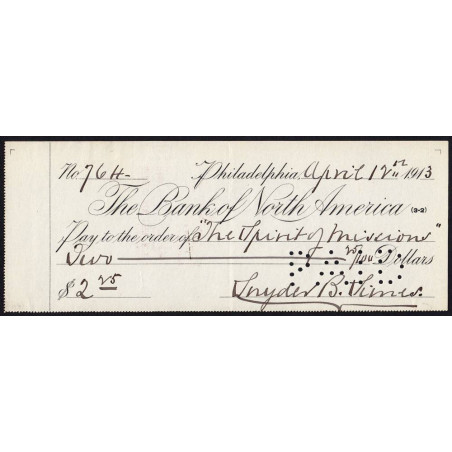 No. 764- Philadelphia, April 12 1913
The Bank of North America (3-2)
Pay to the order of "The Spirit of Missions"
Two 25/100 Dollars
$ 2 25 Snyder B. Simes.